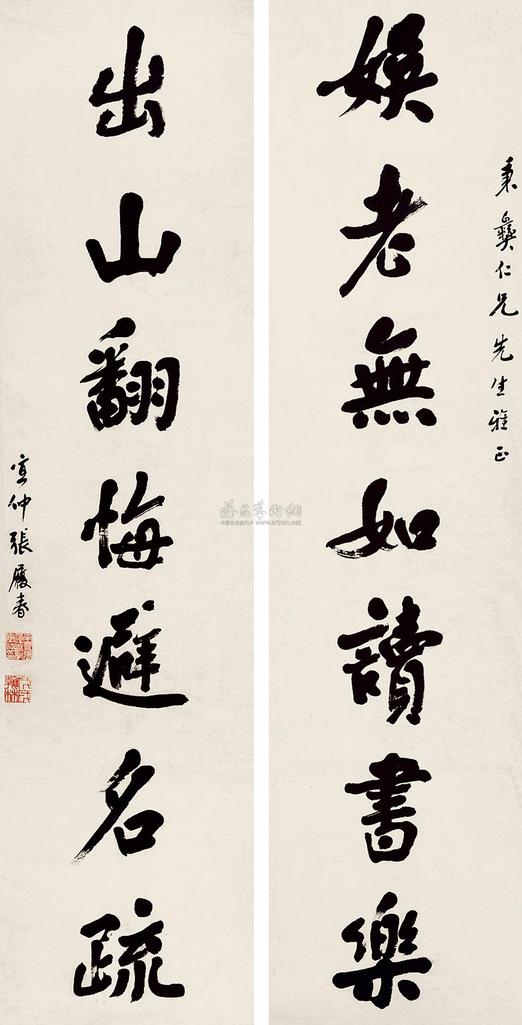 秉彝仁兄先生雅正
娛老無如讀書樂
出山翻悔避名疏
宣仲張履春
www.artron.net